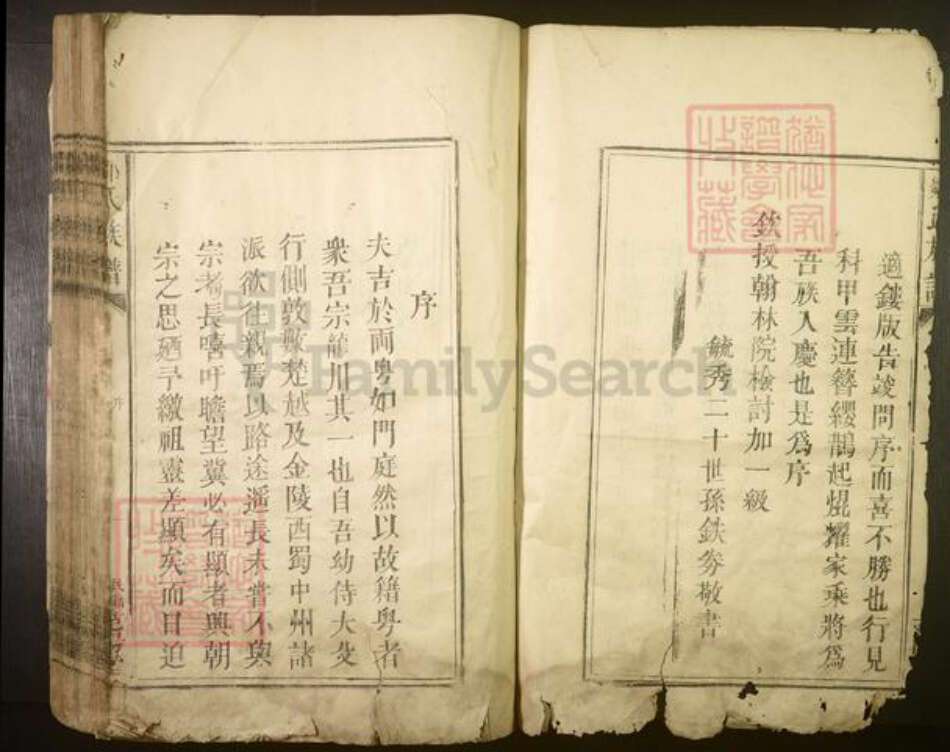 適鏤版告竣問序而喜不勝也行見
科甲雲連簪纓鵲起焜耀家乘將為
吾族人慶也是為序
欽授翰林院檢討加一級
毓秀二十世孫鉄
敬書
序
夫吉於兩粵如門庭然以故籍粵者
衆吾宗龍川其一也自吾幼侍大父
行側敦敦楚越及金陵西蜀中州諸
派欲往親焉以路途遥長未嘗不與
宗者長嘻吁瞻望冀必有顯者興朝
宗之思廼予繳祖靈差顯矣而日迫
氏族譜
FamilySearch
收藏
譜學會